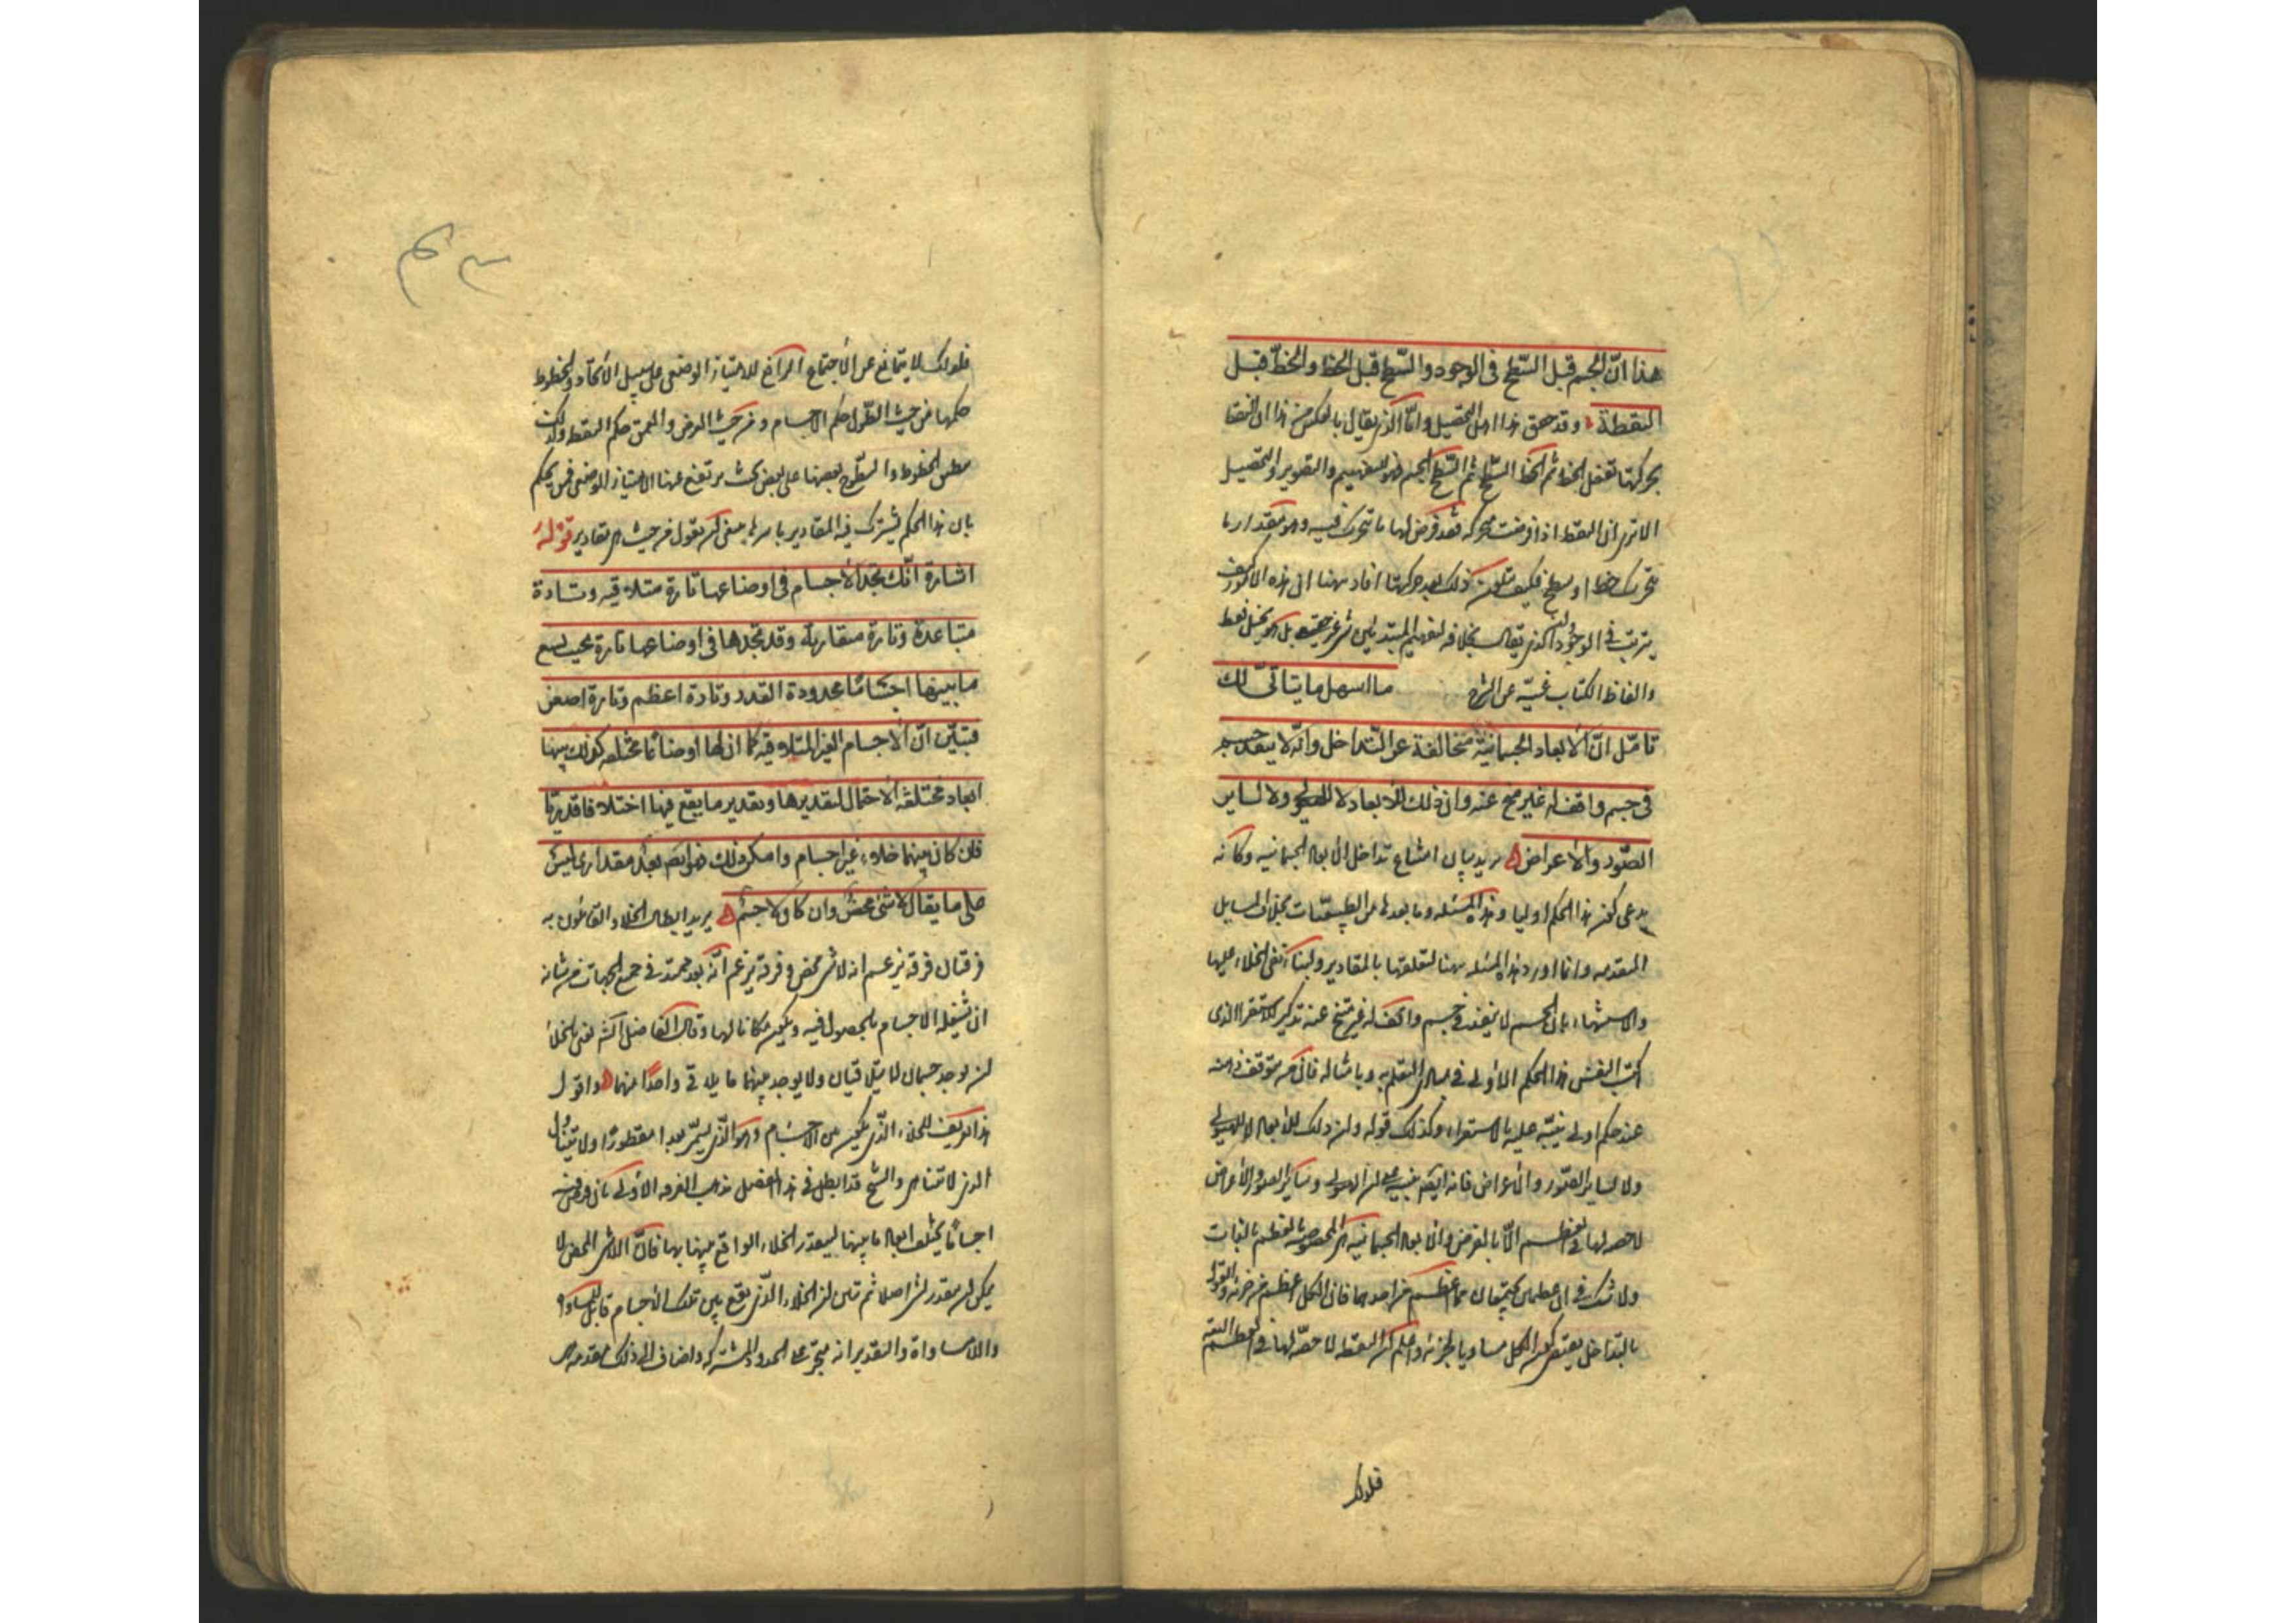 هذا انّ الجسم قبل السّطح فى الوجود والسّطح قبل الخط والخطّ قبل
النقطة وقد حقق هذا اهل التحصيل وامّا الذى يقال بالعكس من هذا ان النقطة
بحركتها تفعل الخط ثم الخط السّطح ثم السّطح الجسم فهو للتفهيم والتصوير والتخييل
الا ترى ان النقطة اذا فرضت متحركة فقد فرض لها ما تتحرك فيه وهو مقدار ما
خط او سطح فكيف يتكون ذلك بعد حركتها افاد ههنا ان هذه الامور كيف
يترتب فى الوجود وان الذى يقال بخلافه لتفهيم المبتدئين شى غير حقيقى بل هو تخيل فقط
والفاظ الكتاب غنيّة عن الشرح ما اسهل ما يتاتّى لك
تامّل انّ الابعاد الجسمانيّة متخالفة عن التّداخل وانّه لا ينفذ جسم
فى جسم واقف له غير متنح عنه وان ذلك للابعاد لا للهيولى ولا لساير
الصّور والاعراض يريد بيان امتناع تداخل الابعاد الجسمانيه وكانه
يدعى كون هذا الحكم اوليا وهذه المسئله وما بعدها من الطبيعيّات بخلاف المسايل
المتقدمه وانما اورد هذه المسئله ههنا لتعلقها بالمقادير ولبناء نفى الخلاء عليها
والاستشهاد بان الجسم لا ينفذ فى جسم واقف له غير متنح عنه تذكير للاستقراء الذى
اكتسب النفس هذا الحكم الاولى فى مبادى التعلم به وبامثاله فان من توقف ذهنه
عند حكم اولى ينبّه عليه بالاستقراء وكذلك قوله وان ذلك للابعاد لا للهيولى
ولا لساير الصّور والاعراض فانه ايضا تنبيه على ان الهيولى وساير الصور والاعراض
لا حصه لها فى العظم الّا بالعرض وان الابعاد الجسمانيه هى المخصوصة بالعظم بالذات
ولا شك فى ان عظمين يجتمعان هما اعظم من احدهما فان الكل اعظم من جزئه والقول
بالتداخل يقتضى كون الكل مساويا لجزئه واعلم ان النقطة لا حصّة لها فى العظم
فلذلك
فلذلك لا يتمانع عن الاجتماع الرافع للامتياز الوضعى على سبيل الاتحاد والخطوط
حكمها من حيث الطّول حكم الاجسام ومن حيث العرض والعمق حكم النقط ولذلك
ينطبق الخطوط والسّطوح بعضها على بعض بحيث يرتفع عنها الامتياز الوضعى فمن يحكم
بان هذا الحكم يشترك فيه المقادير باسرها ينبغى ان يقول من حيث هى مقادير قوله
اشارة انّك تجد الاجسام فى اوضاعها تارة متلاقيه وتارة
متباعدة وتارة متقاربة وقد تجدها فى اوضاعها تارة بحيث يسع
ما بينها اجسامًا محدودة القدر وتارة اعظم وتارة اصغر
فتبيّن انّ الاجسام الغير المتلاقيه كما ان لها اوضاعًا مختلفه كذلك بينها
ابعاد مختلفة الاحتمال لتقديرها وتقدير ما يقع فيها اختلافا قدريّا
فان كان بينها خلاء غير اجسام وامكن ذلك فهو ايضا بعد مقدارى ليس
على ما يقال لا شئ محض وان كان لا جسم يريد ابطال الخلاء والقائلون به
فرقتان فرقة يزعم انه لا شى محض وفرقة يزعم انّه بعد ممتد فى جميع الجهات من شانه
ان تشغله الاجسام بالحصول فيه ويكون مكانا لها وقال الفاضل الشارح نعنى بالخلاء
ان يوجد جسمان لا يتلاقيان ولا يوجد بينهما ما يلاقى واحدًا منهما واقول
هذا تعريف للخلاء الذى يكون بين الاجسام وهو الّذى يسمّى بعدا مفطورًا ولا يتناول
الذى لا يتناهى والشيخ قد ابطل فى هذا الفصل مذهب الفرقه الاولى بان فرض
اجسامًا يختلف ابعاد ما بينها ليتقدّر الخلاء الواقع بينها بها فانّ اللاشى المحض لا
يمكن ان يتقدر بشى اصلا ثم تبين ان الخلاء الّذى يقع بين تلك الاجسام قابل للمساواة
واللامساواة والتقدير انه متجزّ على الحدود المشتركه واضاف الى ذلك مقدمه هى